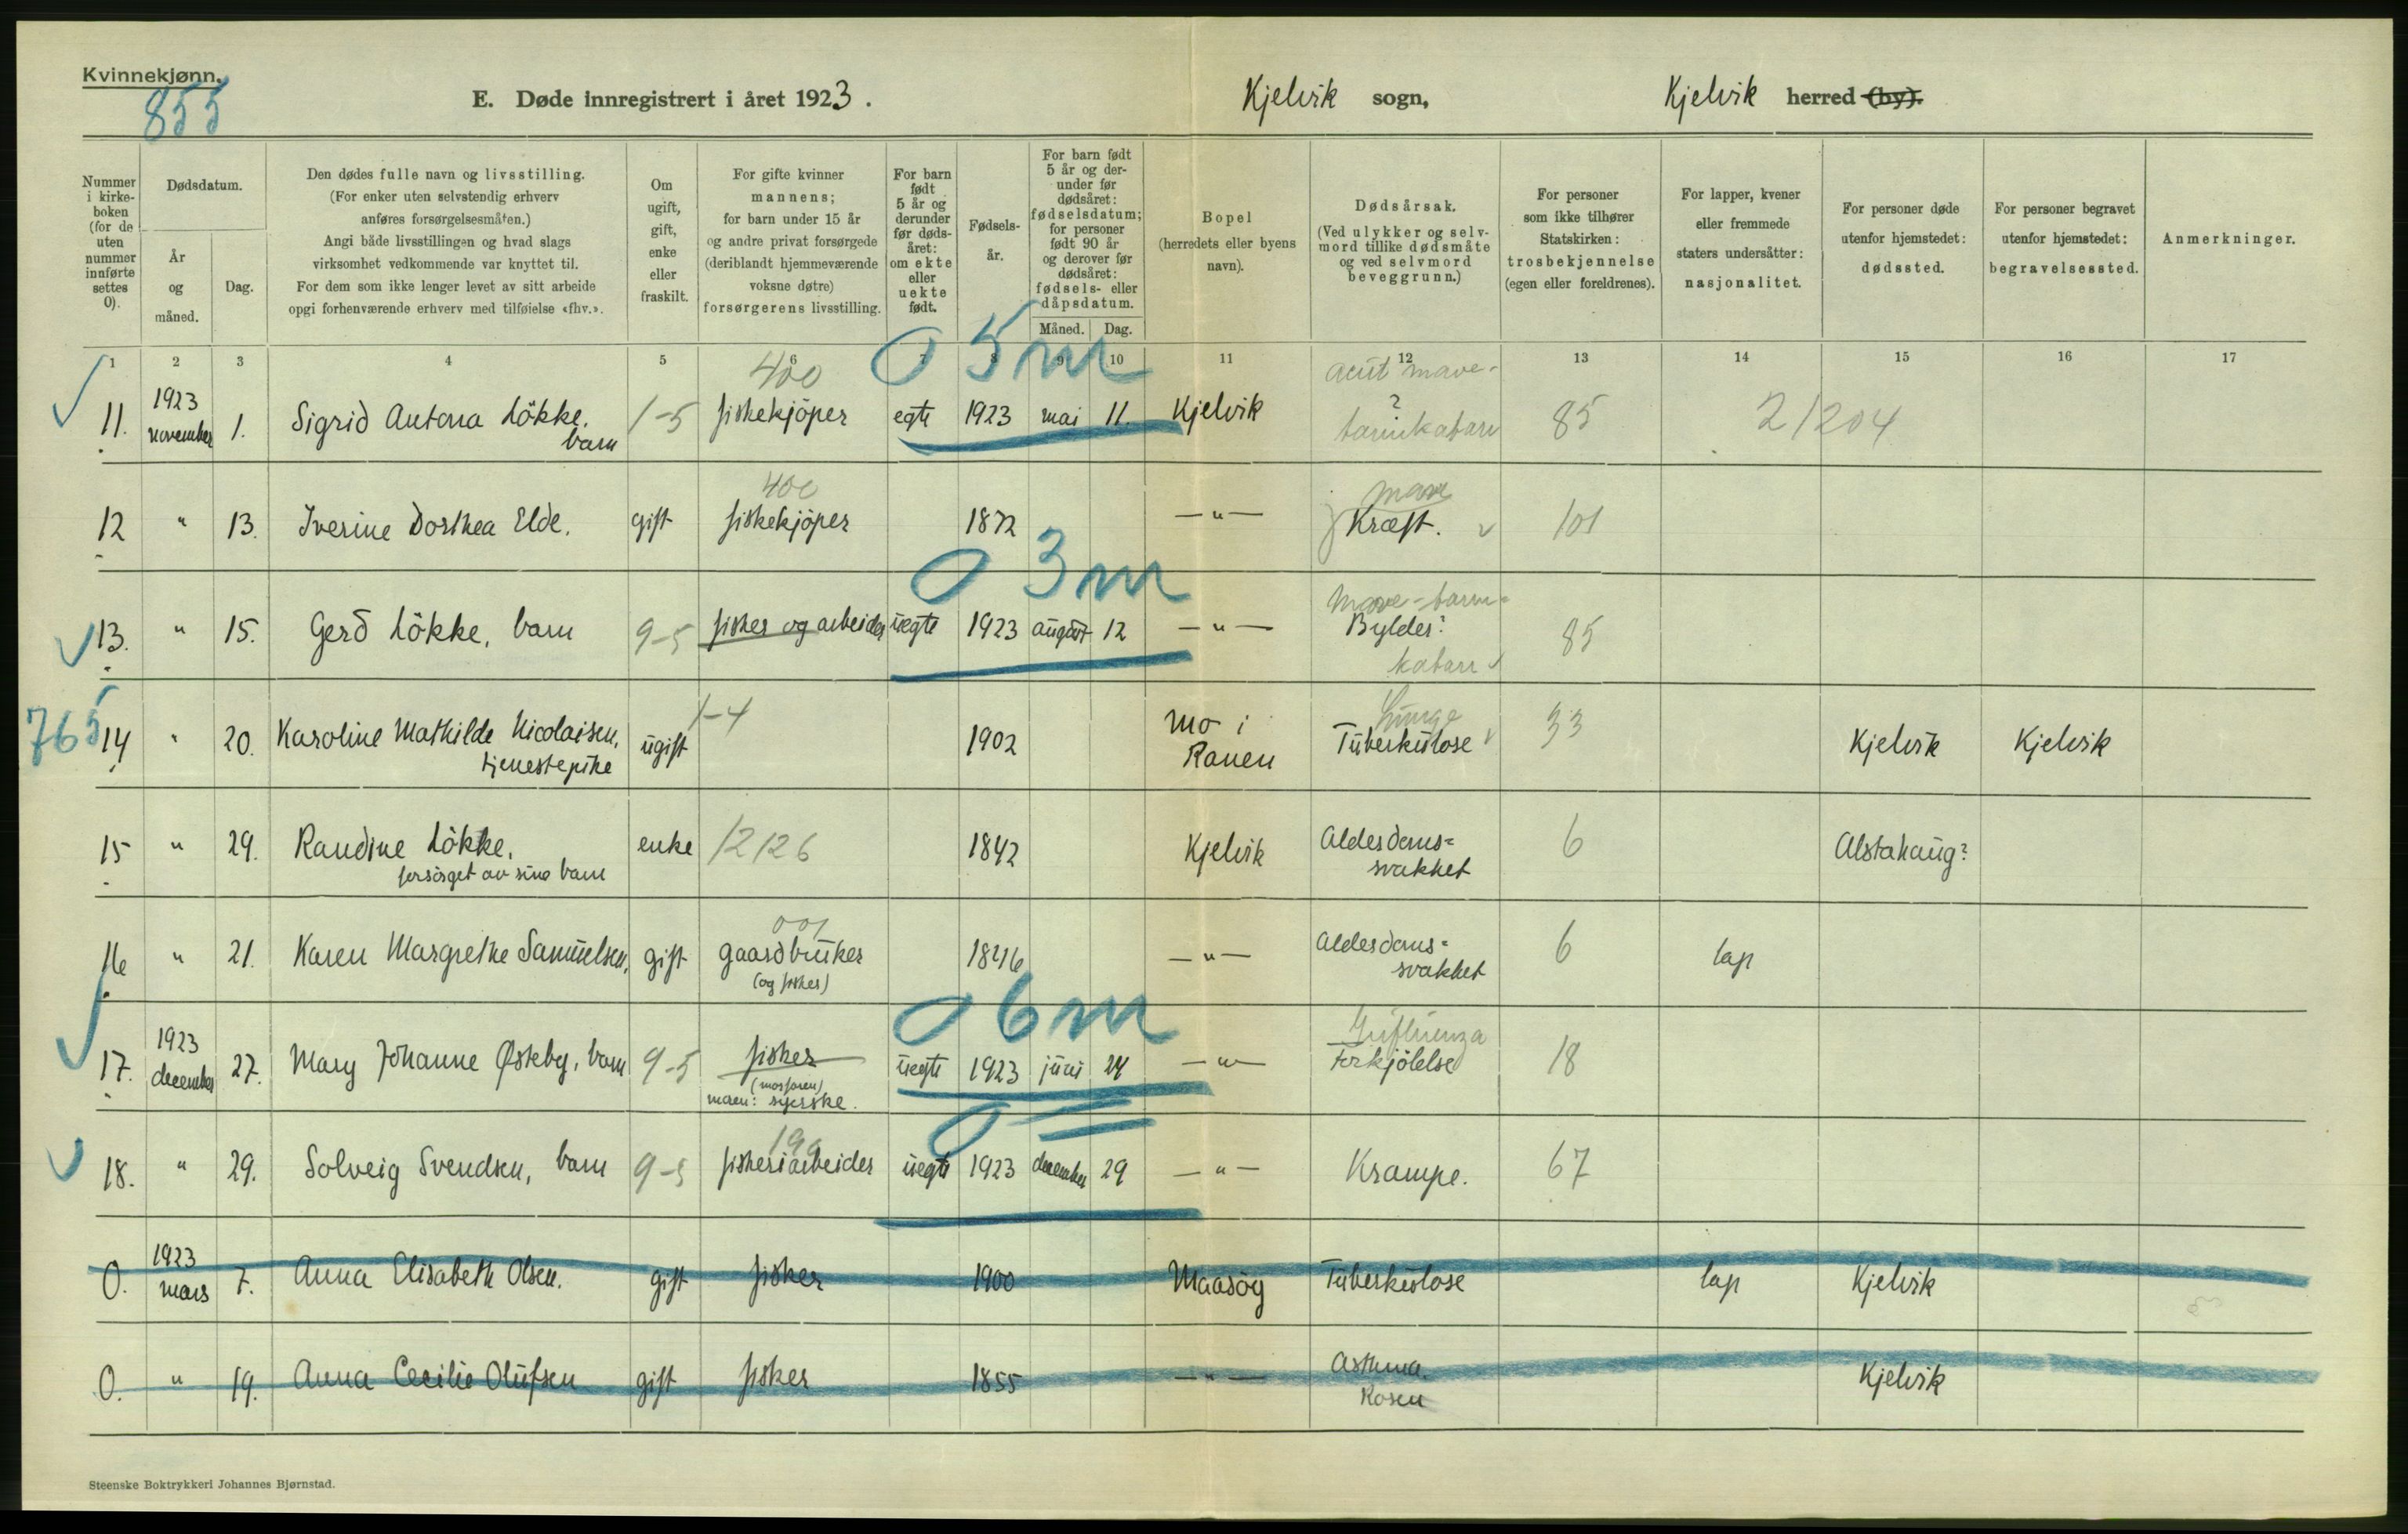 Kvinnekjønn.
855
E. Døde innregistrert i året 1923.
Kjelvik sogn,
Kjelvik herred (by).
Nummer i kirke-boken (for de uten nummer innførte settes 0).
Dødsdatum.
År og måned.
Dag.
Den dødes fulle navn og livsstilling.
(For enker uten selvstendig erhverv anføres forsørgelsesmåten.)
Angi både livsstillingen og hvad slags virksomhet vedkommende var knyttet til.
For dem som ikke lenger levet av sitt arbeide opgi forhenværende erhverv med tilføielse «fhv.».
Om ugift, gift, enke eller fraskilt.
For gifte kvinner mannens; for barn under 15 år og andre privat forsørgede (deriblandt hjemmeværende voksne døtre) forsørgerens livsstilling.
For barn født 5 år og derunder før døds-året: om ekte eller uekte født.
Fødsels-år.
For barn født 5 år og der-under før dødsåret: fødselsdatum; for personer født 90 år og derover før dødsåret: fødsels- eller dåpsdatum.
Måned. Dag.
Bopel (herredets eller byens navn).
Dødsårsak. (Ved ulykker og selv-mord tillike dødsmåte og ved selvmord beveggrunn.)
For personer som ikke tilhører Statskirken: trosbekjennelse (egen eller foreldrenes).
For lapper, kvener eller fremmede staters undersåtter: nasjonalitet.
For personer døde utenfor hjemstedet: dødssted.
For personer begravet utenfor hjemstedet: begravelsessted.
Anmerkninger.
1 2 3 4 5 6 7 8 9 10 11 12 13 14 15 16 17
400 0 5m acut mave-
11. 1923 november 1. Sigrid Antona Lökke, barn 1-5 fiskekjöper egte 1923 mai 11. Kjelvik ? tarmkatarr 85 21204
400 mave
12 " 13. Iverine Dorthea Elde. gift fiskekjöper 1872 —"— Kræft. 101
0 3m Mave-tarm-
13. " 15. Gerd Lökke, barn 9-5 fisker og arbeider uegte 1923 august 12 —"— Bylder? katarr 85
765 1-4 Lunge
14 " 20. Karoline Mathilde Nicolaisen, tjenestepike ugift 1902 Mo i Ranen Tuberkulose 33 Kjelvik Kjelvik
15 " 29. Randine Lökke, forsörget av sine barn enke 12126 1842 Kjelvik Alderdoms=svakhet 6 Alstahaug?
001
16 " 21. Karen Margrethe Samuelsen, gift gaardbruker (og fisker) 1846 —"— Alderdoms=svakhet 6 lap
0 6m Influenza
17. 1923 december 27. Mary Johanne Østeby, barn 9-5 fisker (morfaren) moren: syerske. uegte 1923 juni 24 —"— Forkjölelse 18
199 0
18. " 29. Solveig Svendsen, barn 9-5 fiskeriarbeider uegte 1923 december 29 —"— Krampe. 67
0. 1923 mars 7. Anna Elisabeth Olsen. gift fisker 1900 Maasöy Tuberkulose lap Kjelvik
0. " 19. Anna Cecilie Olufsen gift fisker 1855 —"— Asthma. Rosen Kjelvik
Steenske Boktrykkeri Johannes Bjørnstad.